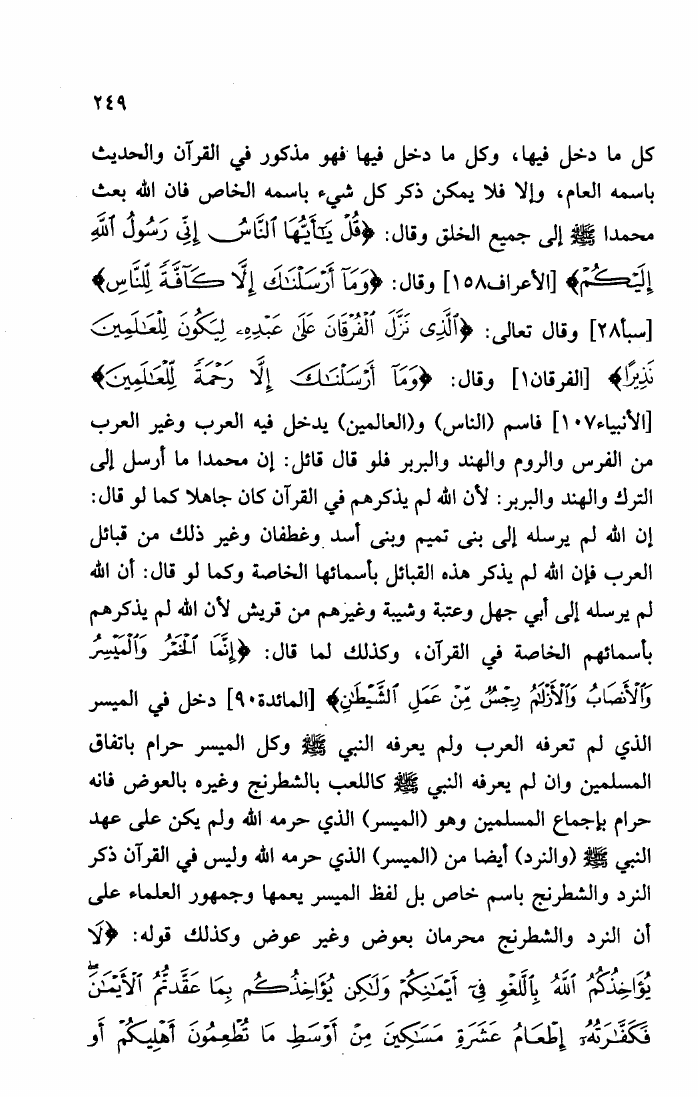 ٢٤٩
كل ما دخل فيها، وكل ما دخل فيها فهو مذكور في القرآن والحديث
باسمه العام، وإلا فلا يمكن ذكر كل شيء باسمه الخاص فان الله بعث
محمدا ﷺ إلى جميع الخلق وقال: ﴿قُلْ يَٰٓأَيُّهَا ٱلنَّاسُ إِنِّى رَسُولُ ٱللَّهِ
إِلَيْكُمْ﴾ [الأعراف١٥٨] وقال: ﴿وَمَآ أَرْسَلْنَٰكَ إِلَّا كَآفَّةً لِّلنَّاسِ﴾
[سبأ٢٨] وقال تعالى: ﴿ٱلَّذِى نَزَّلَ ٱلْفُرْقَانَ عَلَىٰ عَبْدِهِۦ لِيَكُونَ لِلْعَٰلَمِينَ
نَذِيرًا﴾ [الفرقان١] وقال: ﴿وَمَآ أَرْسَلْنَٰكَ إِلَّا رَحْمَةً لِّلْعَٰلَمِينَ﴾
[الأنبياء١٠٧] فاسم (الناس) و(العالمين) يدخل فيه العرب وغير العرب
من الفرس والروم والهند والبربر فلو قال قائل: إن محمدا ما أرسل إلى
الترك والهند والبربر: لأن الله لم يذكرهم في القرآن كان جاهلا كما لو قال:
إن الله لم يرسله إلى بنى تميم وبنى أسد وغطفان وغير ذلك من قبائل
العرب فإن الله لم يذكر هذه القبائل بأسمائها الخاصة وكما لو قال: أن الله
لم يرسله إلى أبي جهل وعتبة وشيبة وغيرهم من قريش لأن الله لم يذكرهم
بأسمائهم الخاصة في القرآن، وكذلك لما قال: ﴿إِنَّمَا ٱلْخَمْرُ وَٱلْمَيْسِرُ
وَٱلْأَنصَابُ وَٱلْأَزْلَٰمُ رِجْسٌ مِّنْ عَمَلِ ٱلشَّيْطَٰنِ﴾ [المائدة٩٠] دخل في الميسر
الذي لم تعرفه العرب ولم يعرفه النبي ﷺ وكل الميسر حرام باتفاق
المسلمين وان لم يعرفه النبي ﷺ كاللعب بالشطرنج وغيره بالعوض فانه
حرام بإجماع المسلمين وهو (الميسر) الذي حرمه الله ولم يكن على عهد
النبي ﷺ (والنرد) أيضا من (الميسر) الذي حرمه الله وليس في القرآن ذكر
النرد والشطرنج باسم خاص بل لفظ الميسر يعمها وجمهور العلماء على
أن النرد والشطرنج محرمان بعوض وغير عوض وكذلك قوله: ﴿لَا
يُؤَاخِذُكُمُ ٱللَّهُ بِٱللَّغْوِ فِىٓ أَيْمَٰنِكُمْ وَلَٰكِن يُؤَاخِذُكُم بِمَا عَقَّدتُّمُ ٱلْأَيْمَٰنَ ۖ
فَكَفَّٰرَتُهُۥٓ إِطْعَامُ عَشَرَةِ مَسَٰكِينَ مِنْ أَوْسَطِ مَا تُطْعِمُونَ أَهْلِيكُمْ أَوْ